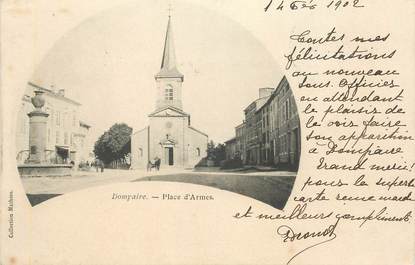 14 Fév 1902
Toutes mes
félicitations
au nouveau
Sous-Officier
en attendant
le plaisir
de la voir faire
son apparition
à Dompaire
Grand merci!
pour la superbe
carte reine march
et meilleurs compliments
Dompaire. — Place d'Armes.
Collection Mathieu